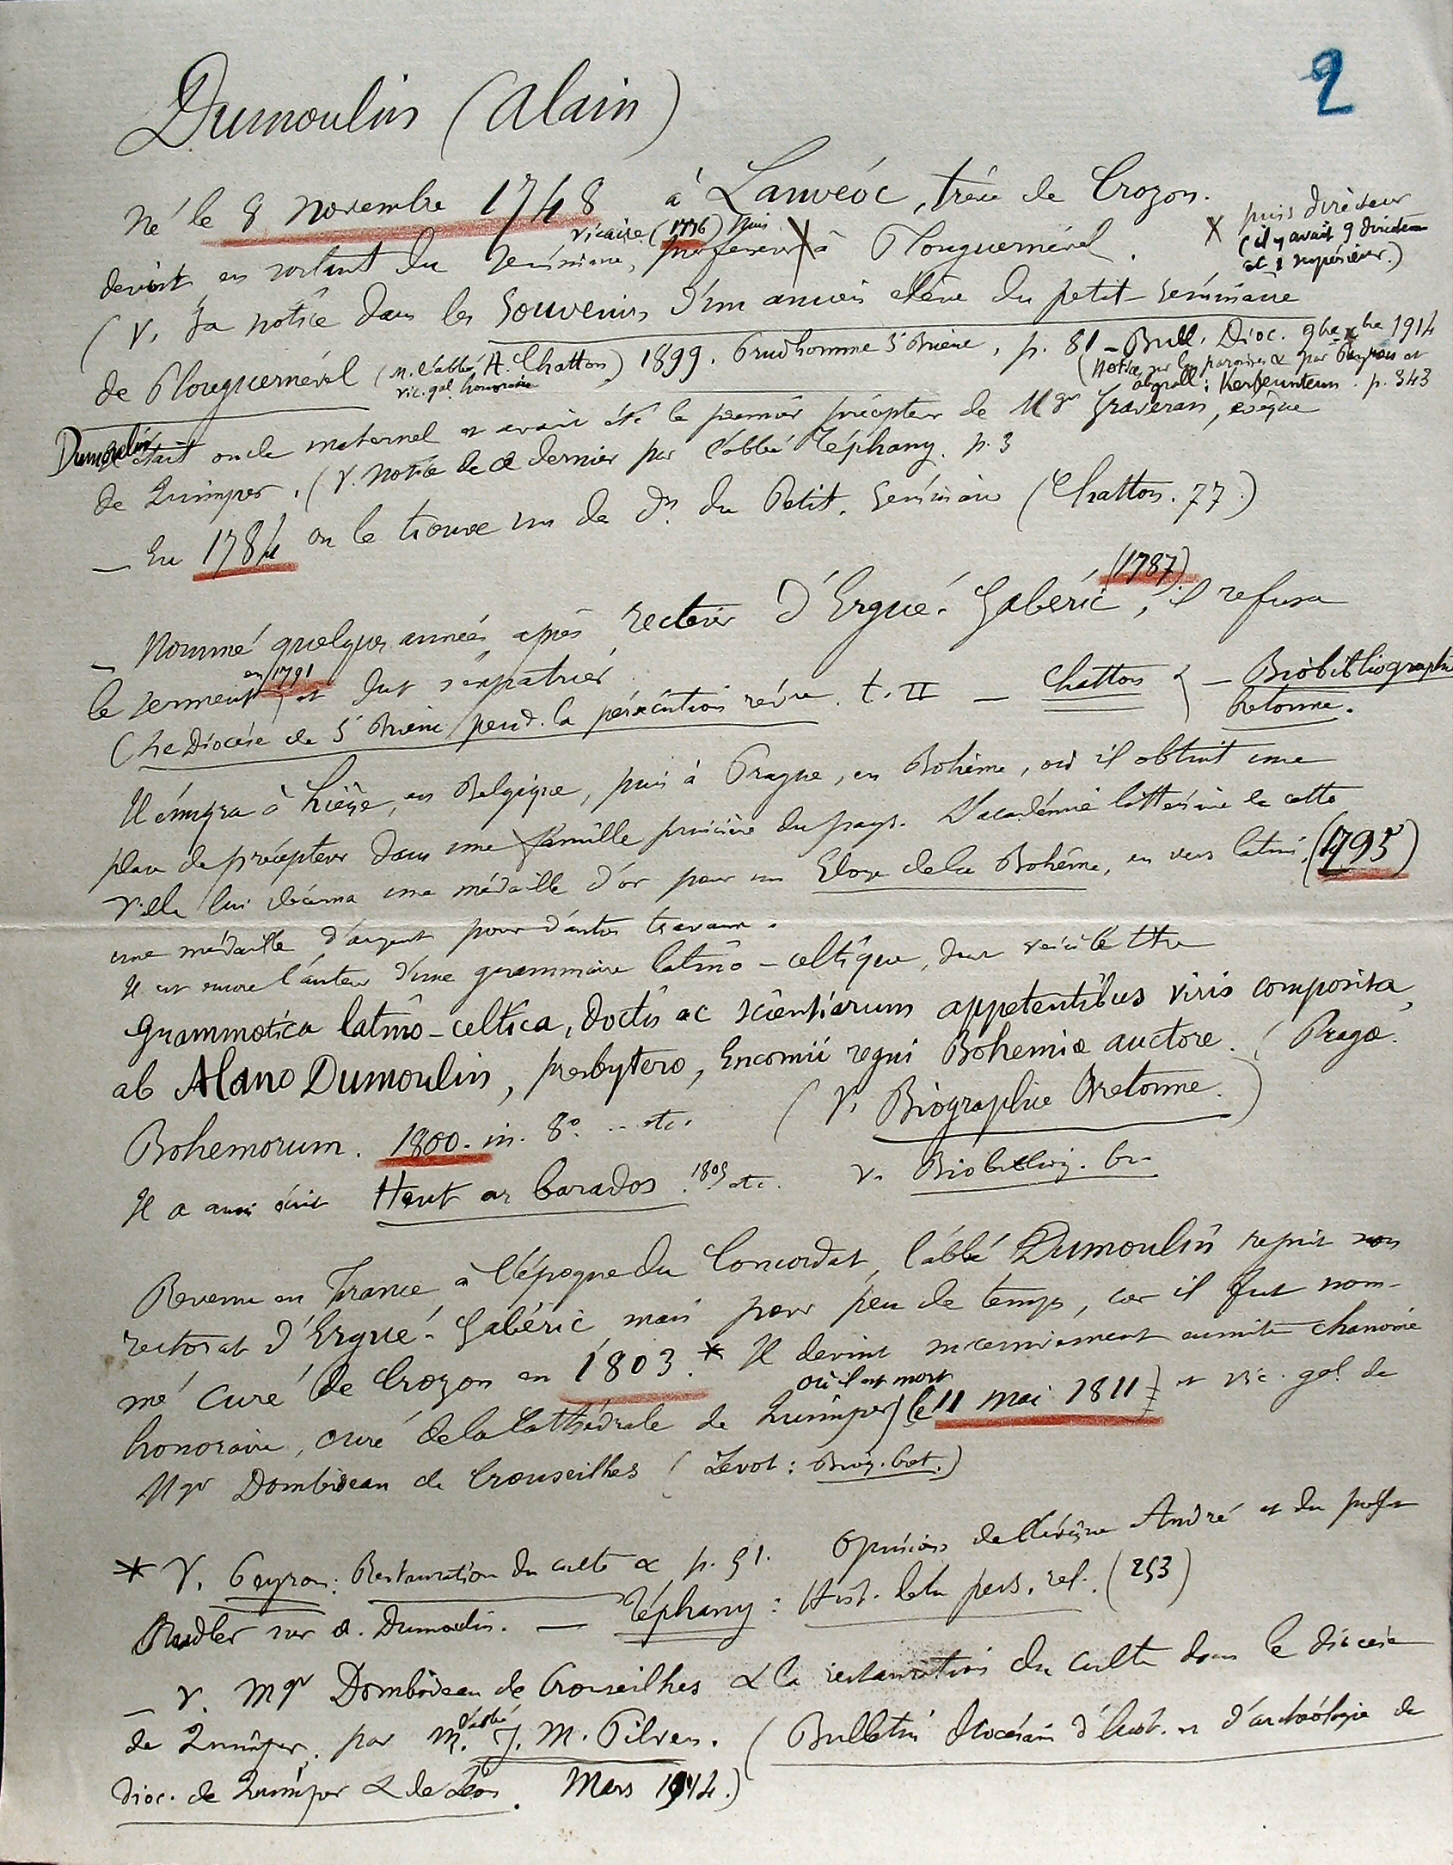 2
Dumoulin (Alain)
Né le 8 Novembre 1748 à Lanvéoc, trève de Crozon.
devint en sortant du Séminaire, vicaire (1776) puis professeur X à Plouguernével.
X puis directeur
(il y avait 9 directeurs
et 1 supérieur.)
(V. sa notice dans les Souvenirs d'un ancien élève du petit-séminaire
de Plouguernével (M. l'abbé H. Chatton) 1899. Prudhomme St Brieuc, p. 81 - Bull. Dioc. 9bre xbre 1914
vic. gal. honoraire
(Notice sur les paroisses & par Peyron et
Abgrall: Kerfeunteun. p. 343
Dumoulin était oncle maternel et avait été le premier précepteur de Mgr Graveran, évêque
de Quimper. (V. notice de ce dernier par l'abbé Téphany. p. 3
- En 1784 on le trouve un des Drs du Petit Séminaire (Chatton. 77.)
- Nommé quelques années après recteur d'Ergué-Gabéric (1787), il refusa
le serment en 1791 et dut s'expatrier
(Le Diocèse de St Brieuc pend. la persécution révre. t. II - Chatton & - Biobibliographie
bretonne.
Il émigra à Liège, en Belgique, puis à Prague, en Bohème, où il obtint une
place de précepteur dans une famille princière du pays. L'académie littéraire de cette
ville lui décerna une médaille d'or pour un Eloge de la Bohême, en vers latins. (1795)
une médaille d'argent pour d'autres travaux.
Il est encore l'auteur d'une grammaire latino-celtique, dont voici le titre
Grammatica latino-celtica, doctis ac scientiarum appetentibus viris composita,
ab Alano Dumoulin, presbytero, Encomii regni Bohemiæ auctore. (Pragæ.
Bohemorum. 1800. in. 8°. .. etc. (V. Biographie Bretonne.)
Il a aussi écrit Hent ar barados. 1805 etc. V. Biobibliog. br.
Revenu en France à l'époque du Concordat, l'abbé Dumoulin reprit son
rectorat d'Ergué-Gabéric mais pour peu de temps, car il fut nom-
mé curé de Crozon en 1803.* Il devint successivement ensuite chanoine
honoraire, curé de la Cathédrale de Quimper, où il est mort (le 11 mai 1811) et vic. gal. de
Mgr Dombideau de Crouseilhes (Levot: Biog. bret.)
* V. Peyron: Restauration du culte & p. 51. Opinions de l'évêque André et du préfet
Rudler sur A. Dumoulin. - Téphany: Hist. de la pers. rel. (253)
- V. Mgr Dombideau de Crouseilhes & la restauration du culte dans le diocèse
de Quimper, par M. l'abbé J. M. Pilven. (Bulletin diocésain d'hist. et d'archéologie du
dioc. de Quimper & de Léon. Mars 1914.)